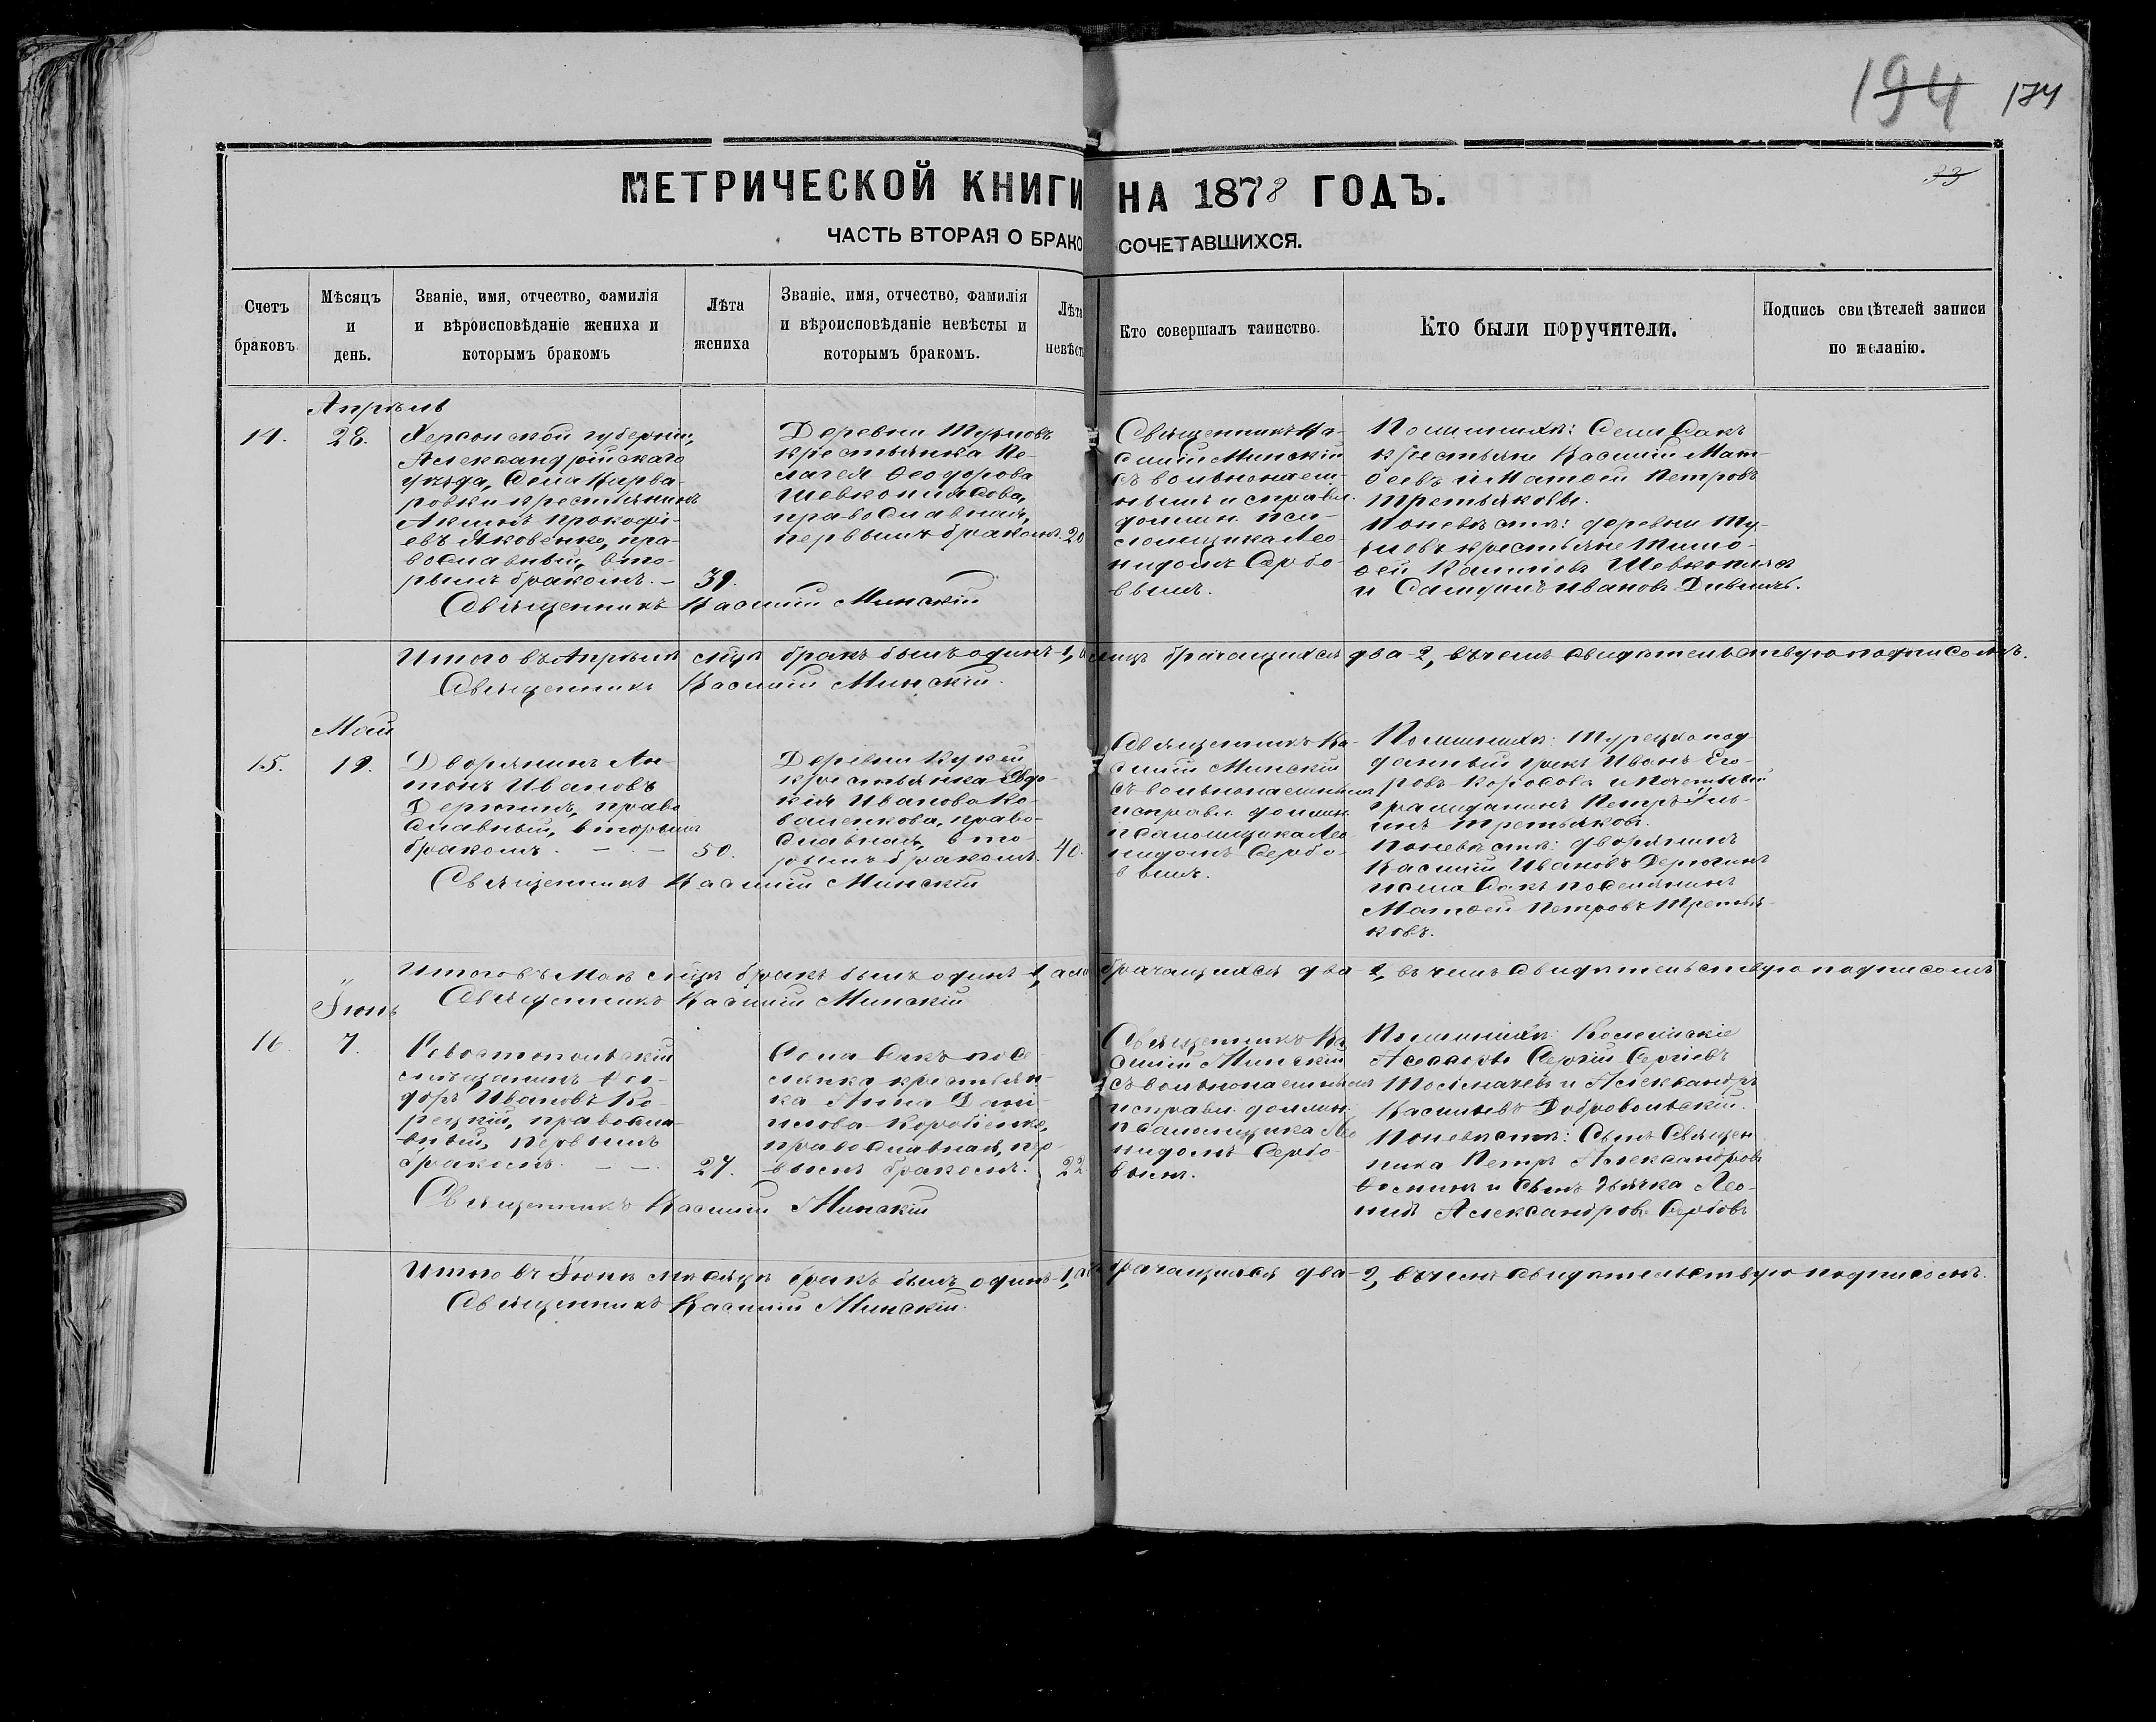 194 174
33
МЕТРИЧЕСКОЙ КНИГИ НА 1878 ГОДЪ.
ЧАСТЬ ВТОРАЯ О БРАКОСОЧЕТАВШИХСЯ.
Счетъ браковъ.
Мѣсяцъ и день.
Званіе, имя, отчество, фамилія
и вѣроисповѣданіе жениха и
которымъ бракомъ
Лѣта
жениха
Званіе, имя, отчество, фамилія
и вѣроисповѣданіе невѣсты и
которымъ бракомъ.
Лѣта
невѣст
Кто совершалъ таинство.
Кто были поручители.
Подпись свидѣтелей записи
по желанію.
Апрѣль
14. 28.
Херсонской губерніи,
Александрійскаго
уѣзда, села Варва-
ровки крестьянинъ
Акимъ Прокофі-
евъ Яковенко, пра-
вославный, вто-
рымъ бракомъ. –
39.
Деревни
крестьянка Пе-
лагея Ѳеодорова
Шевкоплясова,
православная,
первымъ бракомъ.
20
Священникъ Ва-
силій Минскій
съ вольнонаем-
нымъ исправл.
должн. пса-
ломщика Лео-
нидомъ Сербо-
вымъ.
По женихѣ: Села Сакъ
крестьяне Василій Мат-
ѳеевъ и Матѳей Петровъ
Третьяковы.
По невѣстѣ: деревни
крестьяне Тимо-
ѳей Шевкоплясъ
и Иванов
Священникъ Василій Минскій
Итого въ Апрѣлѣ м͠цѣ бракъ былъ одинъ-1, а лицъ брачащихся два-2, въ чемъ свидѣтельствую подписомъ.
Священникъ Василій Минскій.
Май
15. 19.
Дворянинъ Ан-
тонъ Ивановъ
Дерюгинъ, право
славный, вторымъ
бракомъ. – . –
50.
Деревни
крестьянка Евдо-
кія Иванова Ко-
валенкова, право-
славная, вто-
рымъ бракомъ.
40.
Священникъ Ва-
силій Минскій
съ вольнонаемнымъ
исправл. должн.
псаломщика Лео
нидомъ Сербо-
вымъ.
По женихѣ: Турецкопод-
данный грекъ Иванъ Его-
ровъ и Почетный
гражданинъ Петръ Иль-
инъ Третьяковъ.
По невѣстѣ: дворянинъ
Василій Ивановъ Дерюгинъ
и села Сакъ поселянинъ
Матѳей Петровъ Третья-
ковъ.
Священникъ Василій Минскій
Итого въ Маѣ м͠цѣ бракъ былъ одинъ-1, а лиц брачащихся два 2, въ чемъ свидѣтельствую подписомъ
Священникъ Василій Минскій
Іюнь
16. 7.
Севостопольскій
мѣщанинъ Ѳео-
доръ Ивановъ Ко-
рецкій, правосла-
вный, первымъ
бракомъ. – – .
27.
Села Сакъ посе-
лянка крестьян-
ка Анна Дани-
лова Коробѣенко,
православная, пер-
вымъ бракомъ.
22
Священникъ Ва
силій Минскій
съ вольнонаемнымъ
исправл. должн.
псаломщика Лео
нидомъ Сербо-
вымъ.
По женихѣ:
Сергій Сергіевъ
Толмачевъ и Александръ
Васильевъ Добровольскій.
По невѣстѣ: Сынъ Священ
ника Петръ Александровъ
и Сынъ Дьячка Лео-
нидъ Александровъ Сербовъ
Священникъ Василій Минскій
Итого въ Іюнѣ мѣсяцѣ бракъ былъ одинъ-1, а брачащихся два-2, въ чемъ свидѣтельствую подписомъ.
Священникъ Василій Минскій.